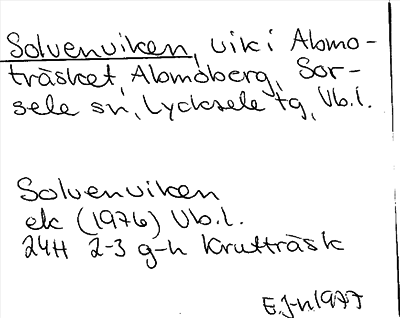 Solvenviken, vik i Abmo-
träsket, Abmoberg, Sor-
sele sn, Lycksele tg, Vb.l.
Solvenviken
ek (1976) Vb.l.
24H 2-3 g-h Krutträsk
E.J-n 1977